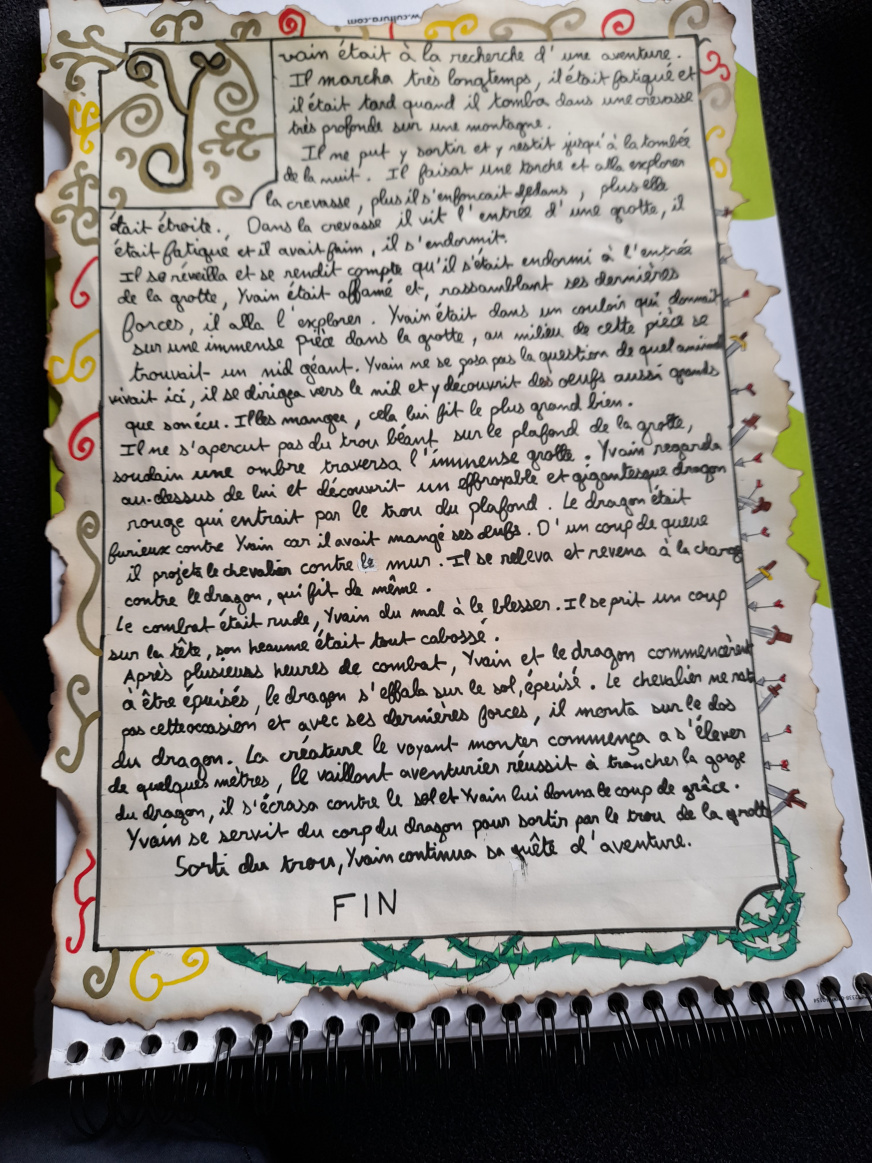 w.cultura.com
Yvain était à la recherche d'une aventure.
Il marcha très longtemps, il était fatigué et
il était tard quand il tomba dans une crevasse
très profonde sur une montagne.
Il ne put y sortir et y restit jusqu'à la tombée
de la nuit. Il faisat une torche et alla explorer
la crevasse, plus il s'enfoncait dedans, plus elle
était étroite. Dans la crevasse il vit l'entrée d'une grotte, il
était fatigué et il avait faim, il s'endormit.
Il se réveilla et se rendit compte qu'il s'était endormi à l'entrée
de la grotte, Yvain était affamé et, rassamblant ses dernières
forces, il alla l'explorer. Yvain était dans un couloir qui donnait
sur une immense pièce dans la grotte, au milieu de cette pièce se
trouvait un nid géant. Yvain ne se posa pas la question de quel animal
vivait ici, il se dirigea vers le nid et y découvrit des oeufs aussi grands
que son écu. Il les mangea, cela lui fit le plus grand bien.
Il ne s'apercut pas du trou béant sur le plafond de la grotte,
soudain une ombre traversa l'immense grotte. Yvain regarda
au-dessus de lui et découvrit un effroyable et gigantesque dragon
rouge qui entrait par le trou du plafond. Le dragon était
furieux contre Yvain car il avait mangé ses oeufs. D'un coup de queue
il projeta le chevalier contre le mur. Il se releva et revena à la charge
contre le dragon, qui fit de même.
Le combat était rude, Yvain du mal à le blesser. Il se prit un coup
sur la tête, son heaume était tout cabossé.
Après plusieurs heures de combat, Yvain et le dragon commencèrent
à être épuisés, le dragon s'effala sur le sol, épuisé. Le chevalier ne rata
pas cette occasion et avec ses dernières forces, il monta sur le dos
du dragon. La créature le voyant monter commença a s'élever
de quelques mètres, le vaillant aventurier réussit à trancher la gorge
du dragon, il s'écrasa contre le sol et Yvain lui donna le coup de grâce.
Yvain se servit du corp du dragon pour sortir par le trou de la grotte
Sorti du trou, Yvain continua sa quête d'aventure.
FIN